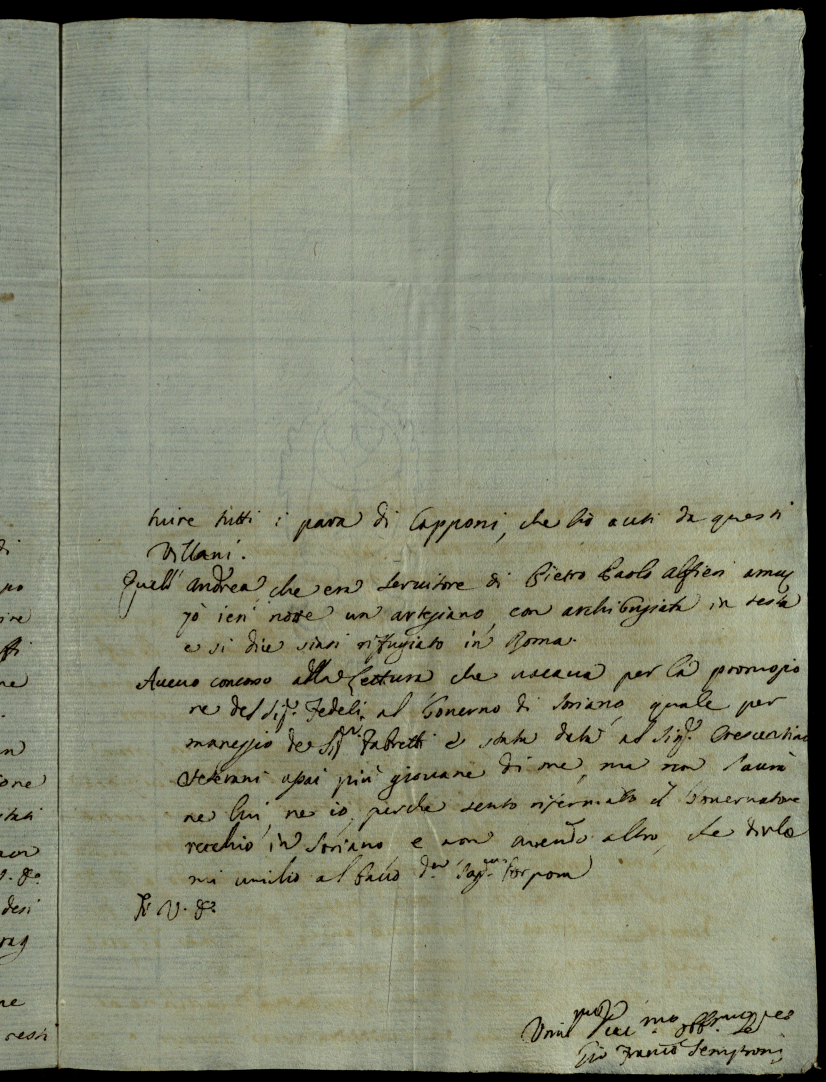 tuire tutti i para di Capponi, che hò auti da questi
Villani.
Quell' Andrea che era seruitore di Pietro Paolo Alfieri amaz
zò ieri notte un artegiano, con archibugiata in testa
e si dice siasi riffugiato in Roma.
Aueuo concorso alla Lettura che uacaua per la promozio
ne del Sig.r Fedeli, al Gouerno di Soriano, quale per
maneggio de Sig.ri Fabretti è stata data al Sig.r Crescentino
Veterani assai più giouane di me, ma non l'aurà
ne lui, ne io, perche sento rifermato il Gouernatore
vecchio in Soriano e non auendo altro, che dirle
mi umilio al bacio della Sag.
Di V. S.
di
po
ire
ffi
ne
ione
tati
desi
rag
ne
resti
Gio Franc.o Semproni